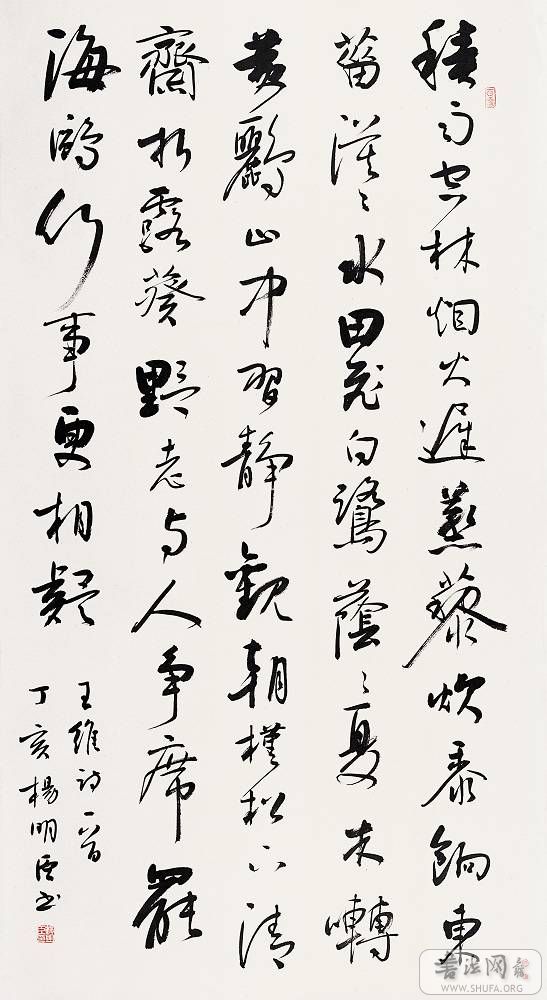 積雨空林烟火遲蒸藜炊黍餉東
菑漠〻水田飛白鷺蔭〻夏木囀
黄鸝山中習静觀朝槿松下清
齋折露葵野老与人争席罷
海鷗何事更相疑
王維詩一首
丁亥楊明臣书
書法网
WWW.SHUFA.ORG